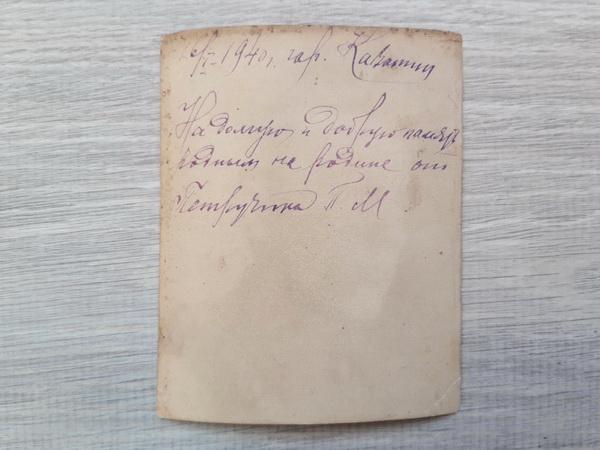 1940 г. гор. Казатин
На долгую и добрую память
родным на родине от
Петручика П М